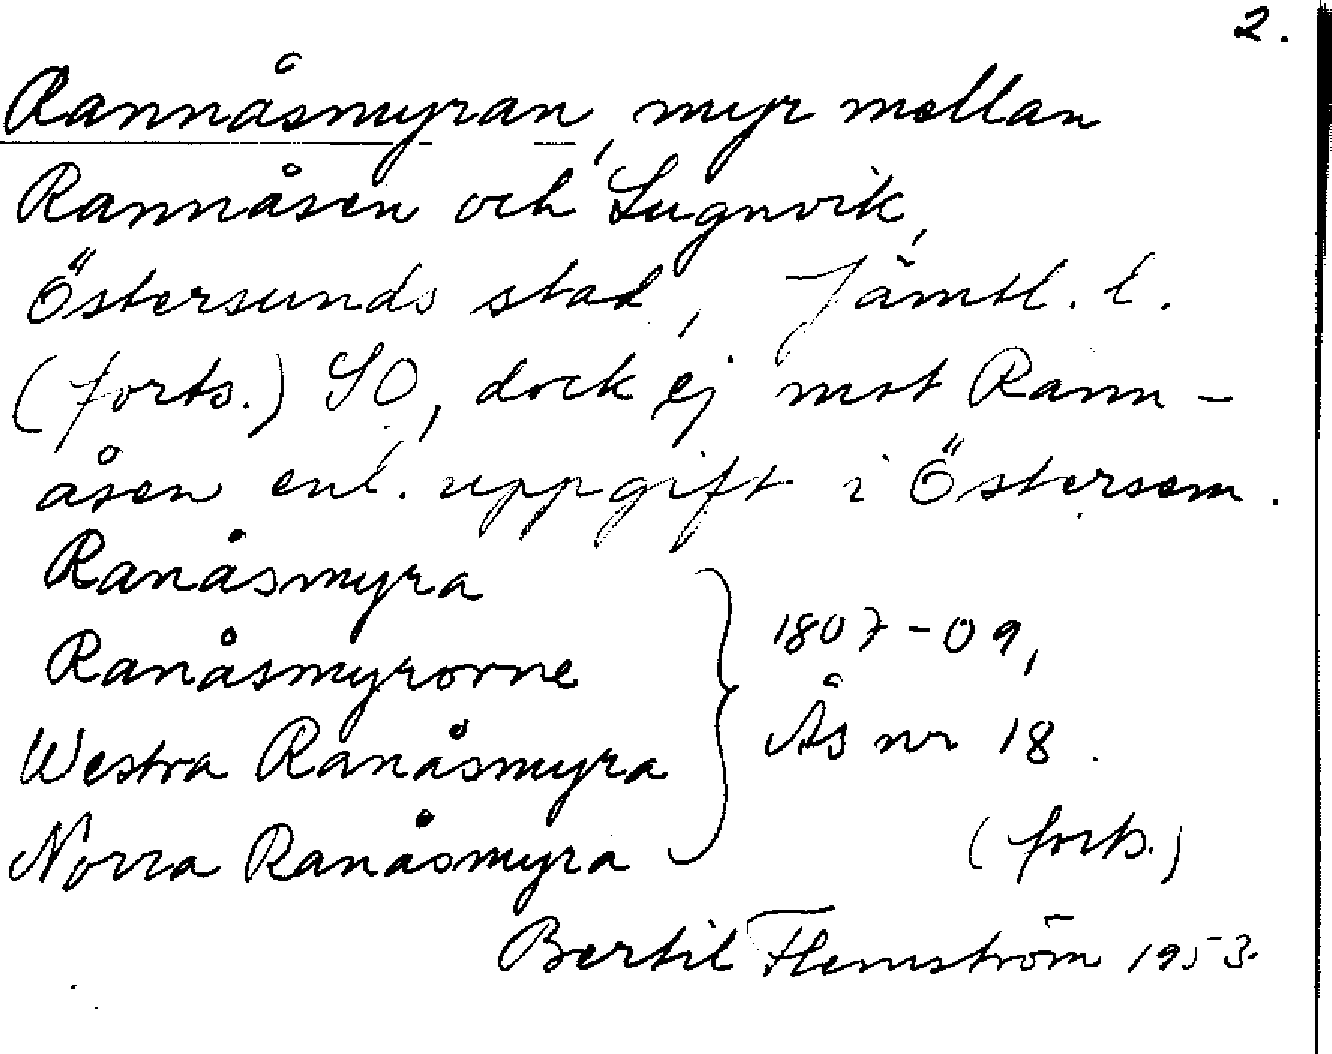 2.
Rannåsmyran, myr mellan
Rannåsen och Lugnvik,
Östersunds stad, Jämtl. l.
(forts.) SO, dock ej mot Rann-
åsen enl. uppgift i Östersem.
Ranåsmyra
Ranåsmyrorne
Westra Ranåsmyra
Norra Ranåsmyra
1807-09,
Ås nr 18.
(forts.)
Bertil Flemström 1953.